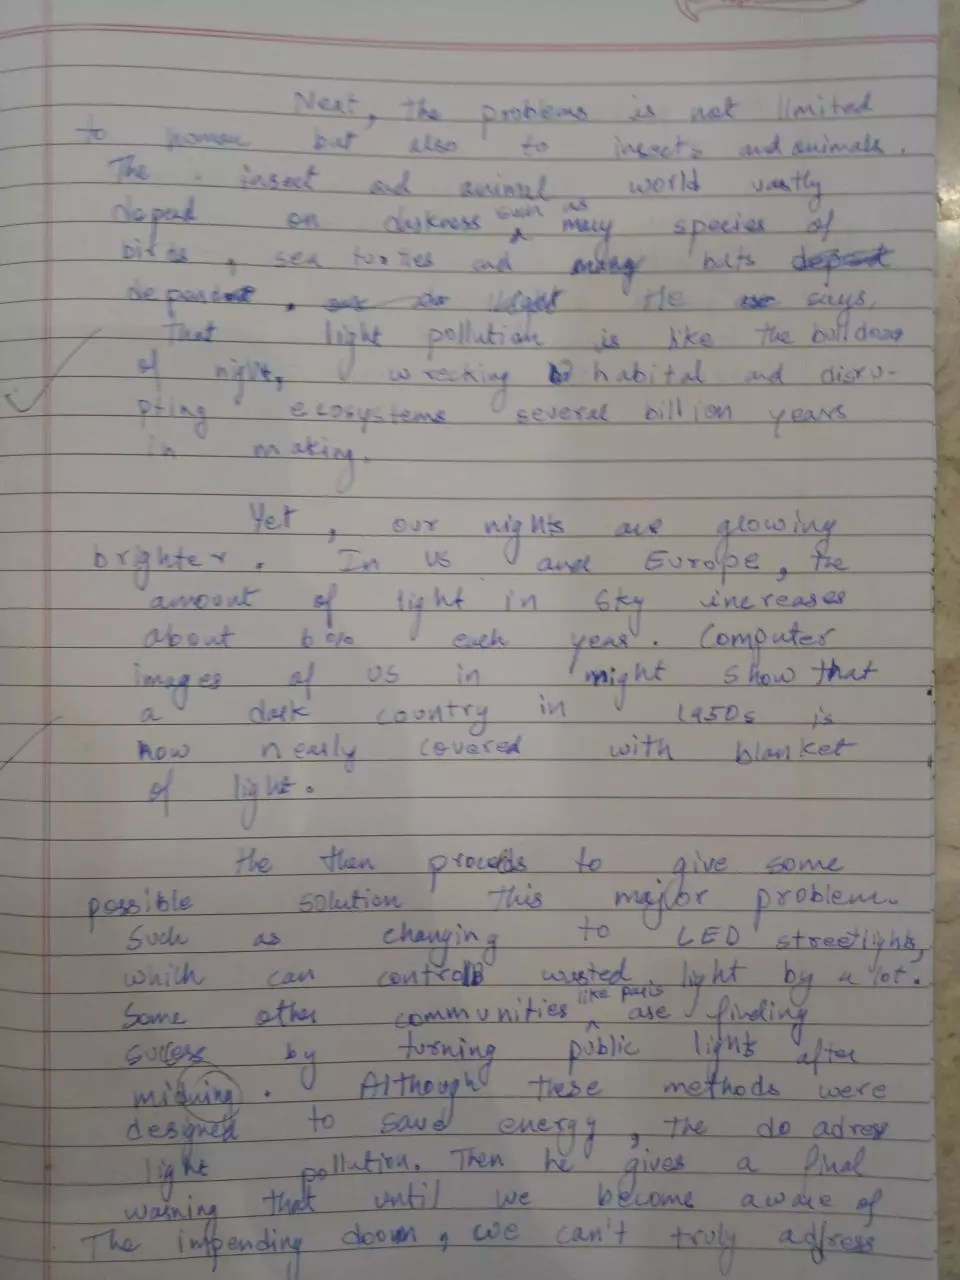 Next, the problems is not limited
to human but also to insects and animals.
The insect and animal world vastly
depend on darkness such as many species of
birds, sea turtles and many bats
depend. He says,
That light pollution is like the bulldozer
of night, wrecking habital and disru-
pting ecosystems several billion years
in making.
Yet, our nights are glowing
brighter. In US and Europe, the
amount of light in sky increases
about 6% each year. Computer
images of US in might show that
a dark country in 1950s is
now nearly covered with blanket
of light.
He then proceeds to give some
possible solution this major problem.
Such as changing to LED streetlights,
which can control wasted light by a lot.
Some other communities like paris are finding
success by turning public lights after
midning. Although these methods were
designed to save energy, the do adress
light pollution. Then he gives a final
warning that until we become aware of
The impending doom, we can't truly adress